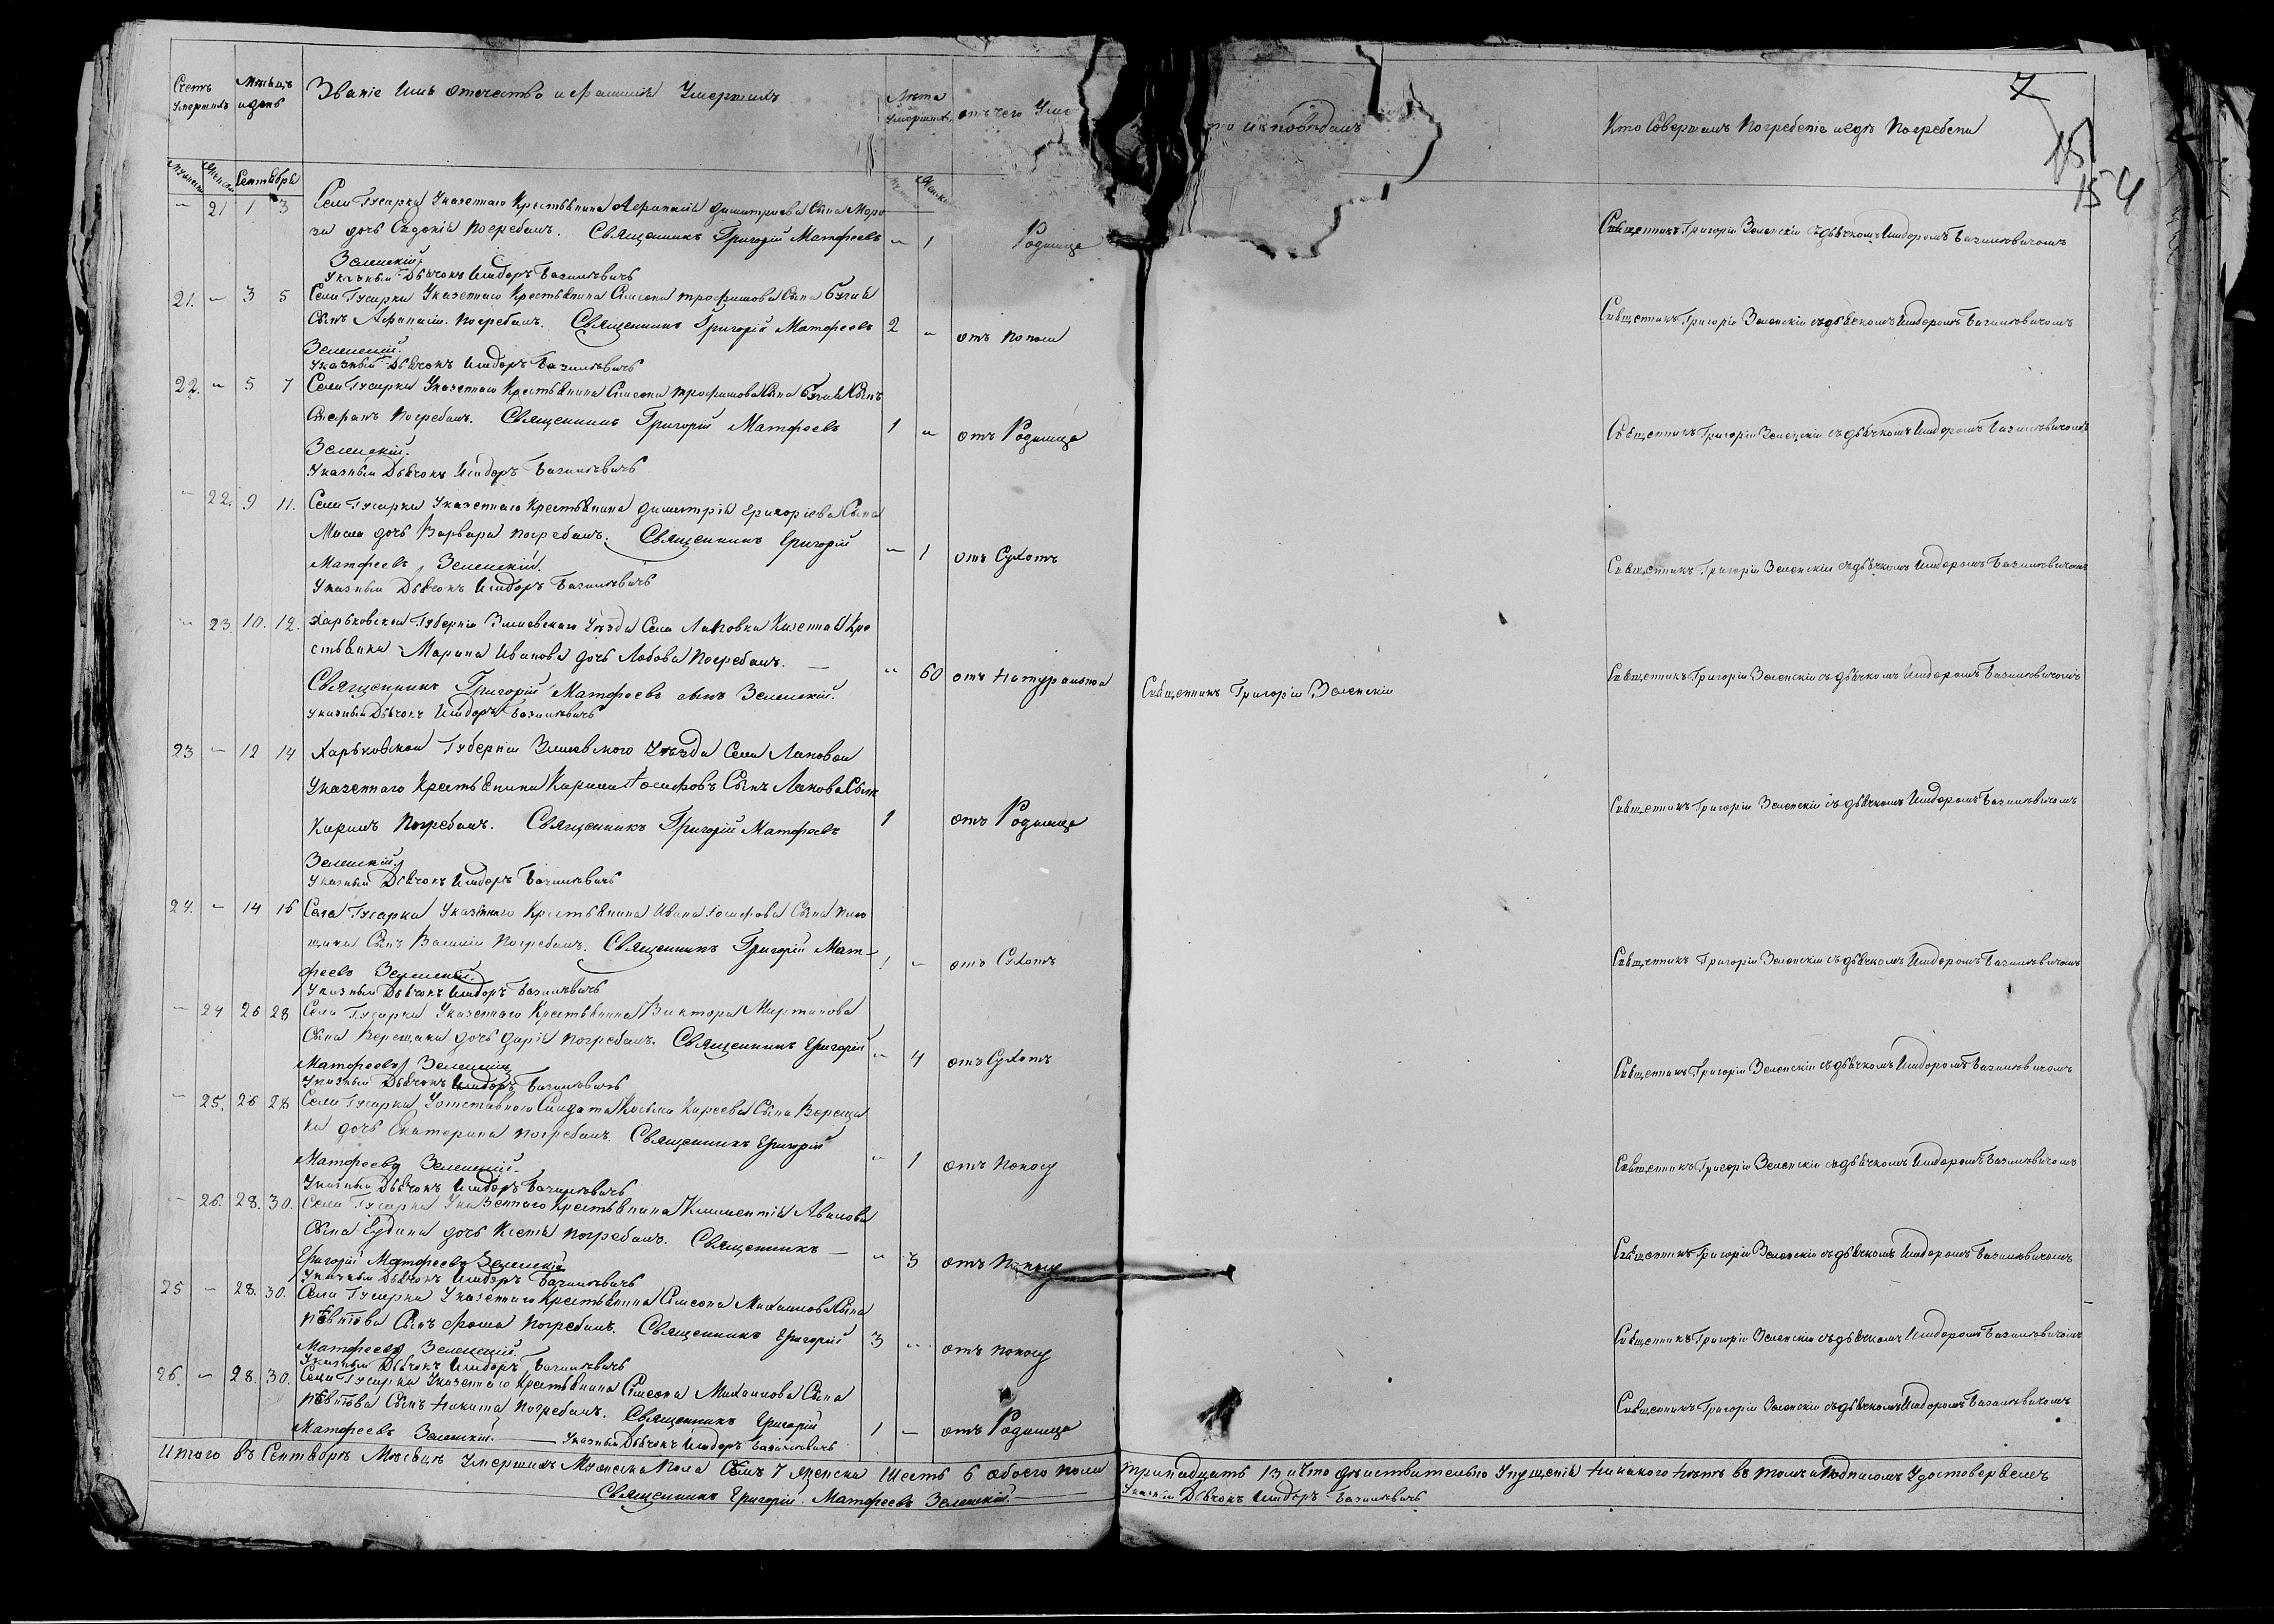 Счетъ умершихъ
Мѣсяцъ и день
Званіе Имя отечество и фамилія Умершихъ
Лѣта Умершихъ
отъ чего Уме
исповѣдалъ
Кто Совершалъ Погребеніе и где Погребены
7
15
154
Сентябрь
21 1 3 Села Гусарки Указеннаго Крестьянина Афанасія димитріева Сына Моро
дочь Евдокія Погребалъ. Священникъ Григорій Матфеевъ
Зеленскій
Указный Дьячокъ Исидоръ Базилевичъ
1 Родимца
Священникъ Григорій Зеленскій съ дьячкомъ Исидоромъ Базилевичомъ
21. 3 5 Села Гусарки Указеннаго Крестьянина Симеона трофимова Сына Бугай
Сынъ Афанасій. Погребалъ. Священникъ Григорій Матфеевъ
Зеленскій.
Указный Дьячокъ Исидоръ Базилевичъ
2 отъ поносы
Священникъ Григорій Зеленскій съ дьячкомъ Исидоромъ Базилевичомъ
22. 5 7 Села Гусарки Указеннаго Крестьянина Симеона трофимова Сына Бугай Сынъ
Стефанъ Погребалъ. Священникъ Григорій Матфеевъ
Зеленскій.
Указный Дьячокъ Исидоръ Базилевичъ
1 отъ Родимца
Священникъ Григорій Зеленскій съ дьячкомъ Исидоромъ Базилевичомъ
22. 9 11. Села Гусарки Указеннаго Крестьянина димитрія григоріева Сына
дочь Варвара погребалъ. Священникъ Григорій
Матфеевъ Зеленскій.
Указный Дьячокъ Исидоръ Базилевичъ
1 отъ Сухотъ
Священникъ Григорій Зеленскій съ дьячкомъ Исидоромъ Базилевичомъ
23 10. 12. Харьковской Губерніи Зміевскаго Уѣзда Села Липовки Казенная Кре
стьянка Марина Иванова дочь Лобова Погребалъ.
Священникъ Григорій Матфеевъ сынъ Зеленскій.
Указный Дьячокъ Исидоръ Базилевичъ
60 отъ Натуральной
Священникъ Григорій Зеленскій
Священникъ Григорій Зеленскій съ дьячкомъ Исидоромъ Базилевичомъ
23 12 14 Харьковской Губерніи Зміевского Уѣзда Села Липовой
Указеннаго Крестьянина Карила Іосифовъ Сынъ Сынъ
Карилъ Погребалъ. Священникъ Григорій Матфеевъ
Зеленскій
Указный Дьячокъ Исидоръ Базилевичъ
1 отъ Родимца
Священникъ Григорій Зеленскій съ дьячкомъ Исидоромъ Базилевичомъ
24. 14 16 Села Гусарки Указеннаго Крестьянина Ивана Іосифова Сына
Сынъ Василій Погребалъ. Священникъ Григорій Мат-
феевъ Зеленскій.
Указный Дьячокъ Исидоръ Базилевичъ
1 отъ Сухотъ
Священникъ Григорій Зеленскій съ дьячкомъ Исидоромъ Базилевичомъ
24 26 28 Села Гусарки Указеннаго Крестьянина Виктора Мартинова
Сына Верещаки дочь дарія погребалъ. Священникъ Григорій
Матфеевъ Зеленскій
Указный Дьячокъ Исидоръ Базилевичъ
4 отъ Сухотъ
Священникъ Григорій Зеленскій съ дьячкомъ Исидоромъ Базилевичомъ
25. 26 28 Села Гусарки Уотставного Салдата Косьма Киреева Сына Вереща
ки дочь Екатерина погребалъ. Священникъ Григорій
Матфеевъ Зеленскій.
Указный Дьячокъ Исидоръ Базилевичъ
1 отъ Поносу
Священникъ Григорій Зеленскій съ дьячкомъ Исидоромъ Базилевичомъ
26. 28. 30. Села Гусарки Указеннаго Крестьянина Климентія
Сына дочь погребалъ. Священникъ
Григорій Матфеевъ Зеленскій
Указный Дьячокъ Исидоръ Базилевичъ
3 отъ Поносу
Священникъ Григорій Зеленскій съ дьячкомъ Исидоромъ Базилевичомъ
25 28. 30. Села Гусарки Указеннаго Крестьянина Симеона Михаилова Сына
Сынъ Фома Погребалъ. Священникъ Григорій
Матфеевъ Зеленскій.
Указный Дьячокъ Исидоръ Базилевичъ
3 отъ поносу
Священникъ Григорій Зеленскій съ дьячкомъ Исидоромъ Базилевичомъ
26. 28. 30. Села Гусарки Указеннаго Крестьянина Симеона Михаилова Сына
Сынъ Никита Погребалъ. Священникъ Григорій
Матфеевъ Зеленскій. Указный Дьячокъ Исидоръ Базилевичъ
1 отъ Родимца
Священникъ Григорій Зеленскій съ дьячкомъ Исидоромъ Базилевичомъ
Итого въ Сентябрѣ Мѣсяцѣ Умершихъ Мужеска Пола Семъ 7 женска Шесть 6 обоего пола тринадцать 13 и что дѣйствительно Упущенія никакого нѣтъ въ томъ и Подписомъ Удостоверяемъ
Священникъ Григорій Матфеевъ Зеленскій.
Указный Дьячокъ Исидоръ Базилевичъ